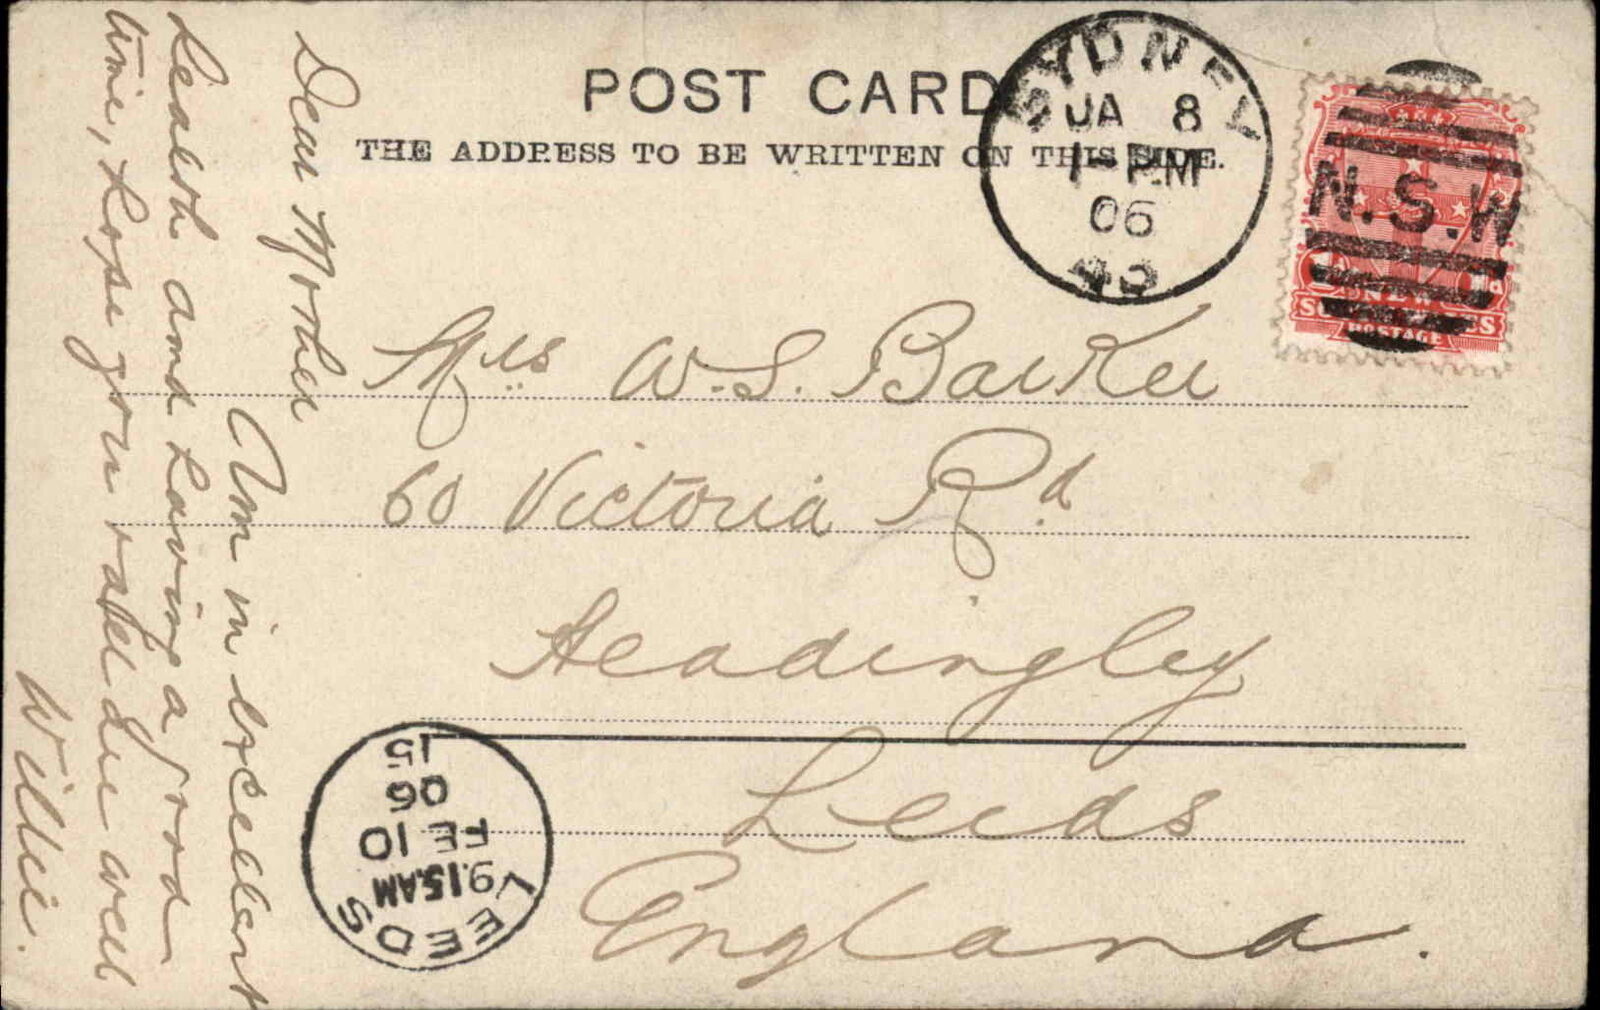 POST CARD
THE ADDRESS TO BE WRITTEN ON THIS SIDE.
SYDNEY
JA 8
1- PM
06
43
N.S.W
1d 1d
SOUTH WALES
POSTAGE
Mrs W. S. Barker
60 Victoria Rd
Headingley
Leeds
England.
Dear Mother
Am in excellent
health and having a good
time, hope you all are well
Willie.
LEEDS
9.15AM
FE 10
06
15